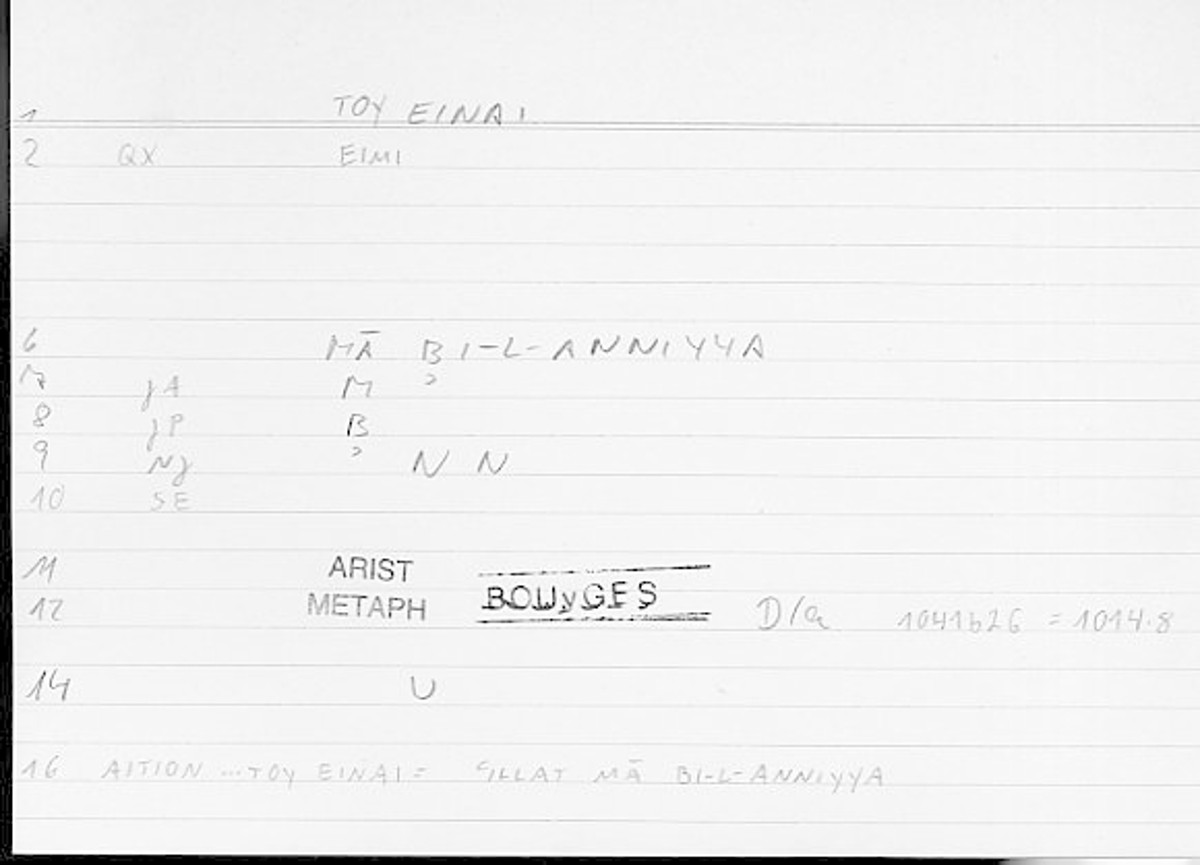 1 TOY EINAI
2 QX EIMI
6 MĀ BI-L-ANNIYYA
7 JA M ʾ
8 JP B
9 NJ ʾ N N
10 SE
11 ARIST
12 METAPH BOUYGES D/a 1041b26 = 1014.8
14 U
16 AITION ... TOY EINAI = ʿILLAT MĀ BI-L-ANNIYYA